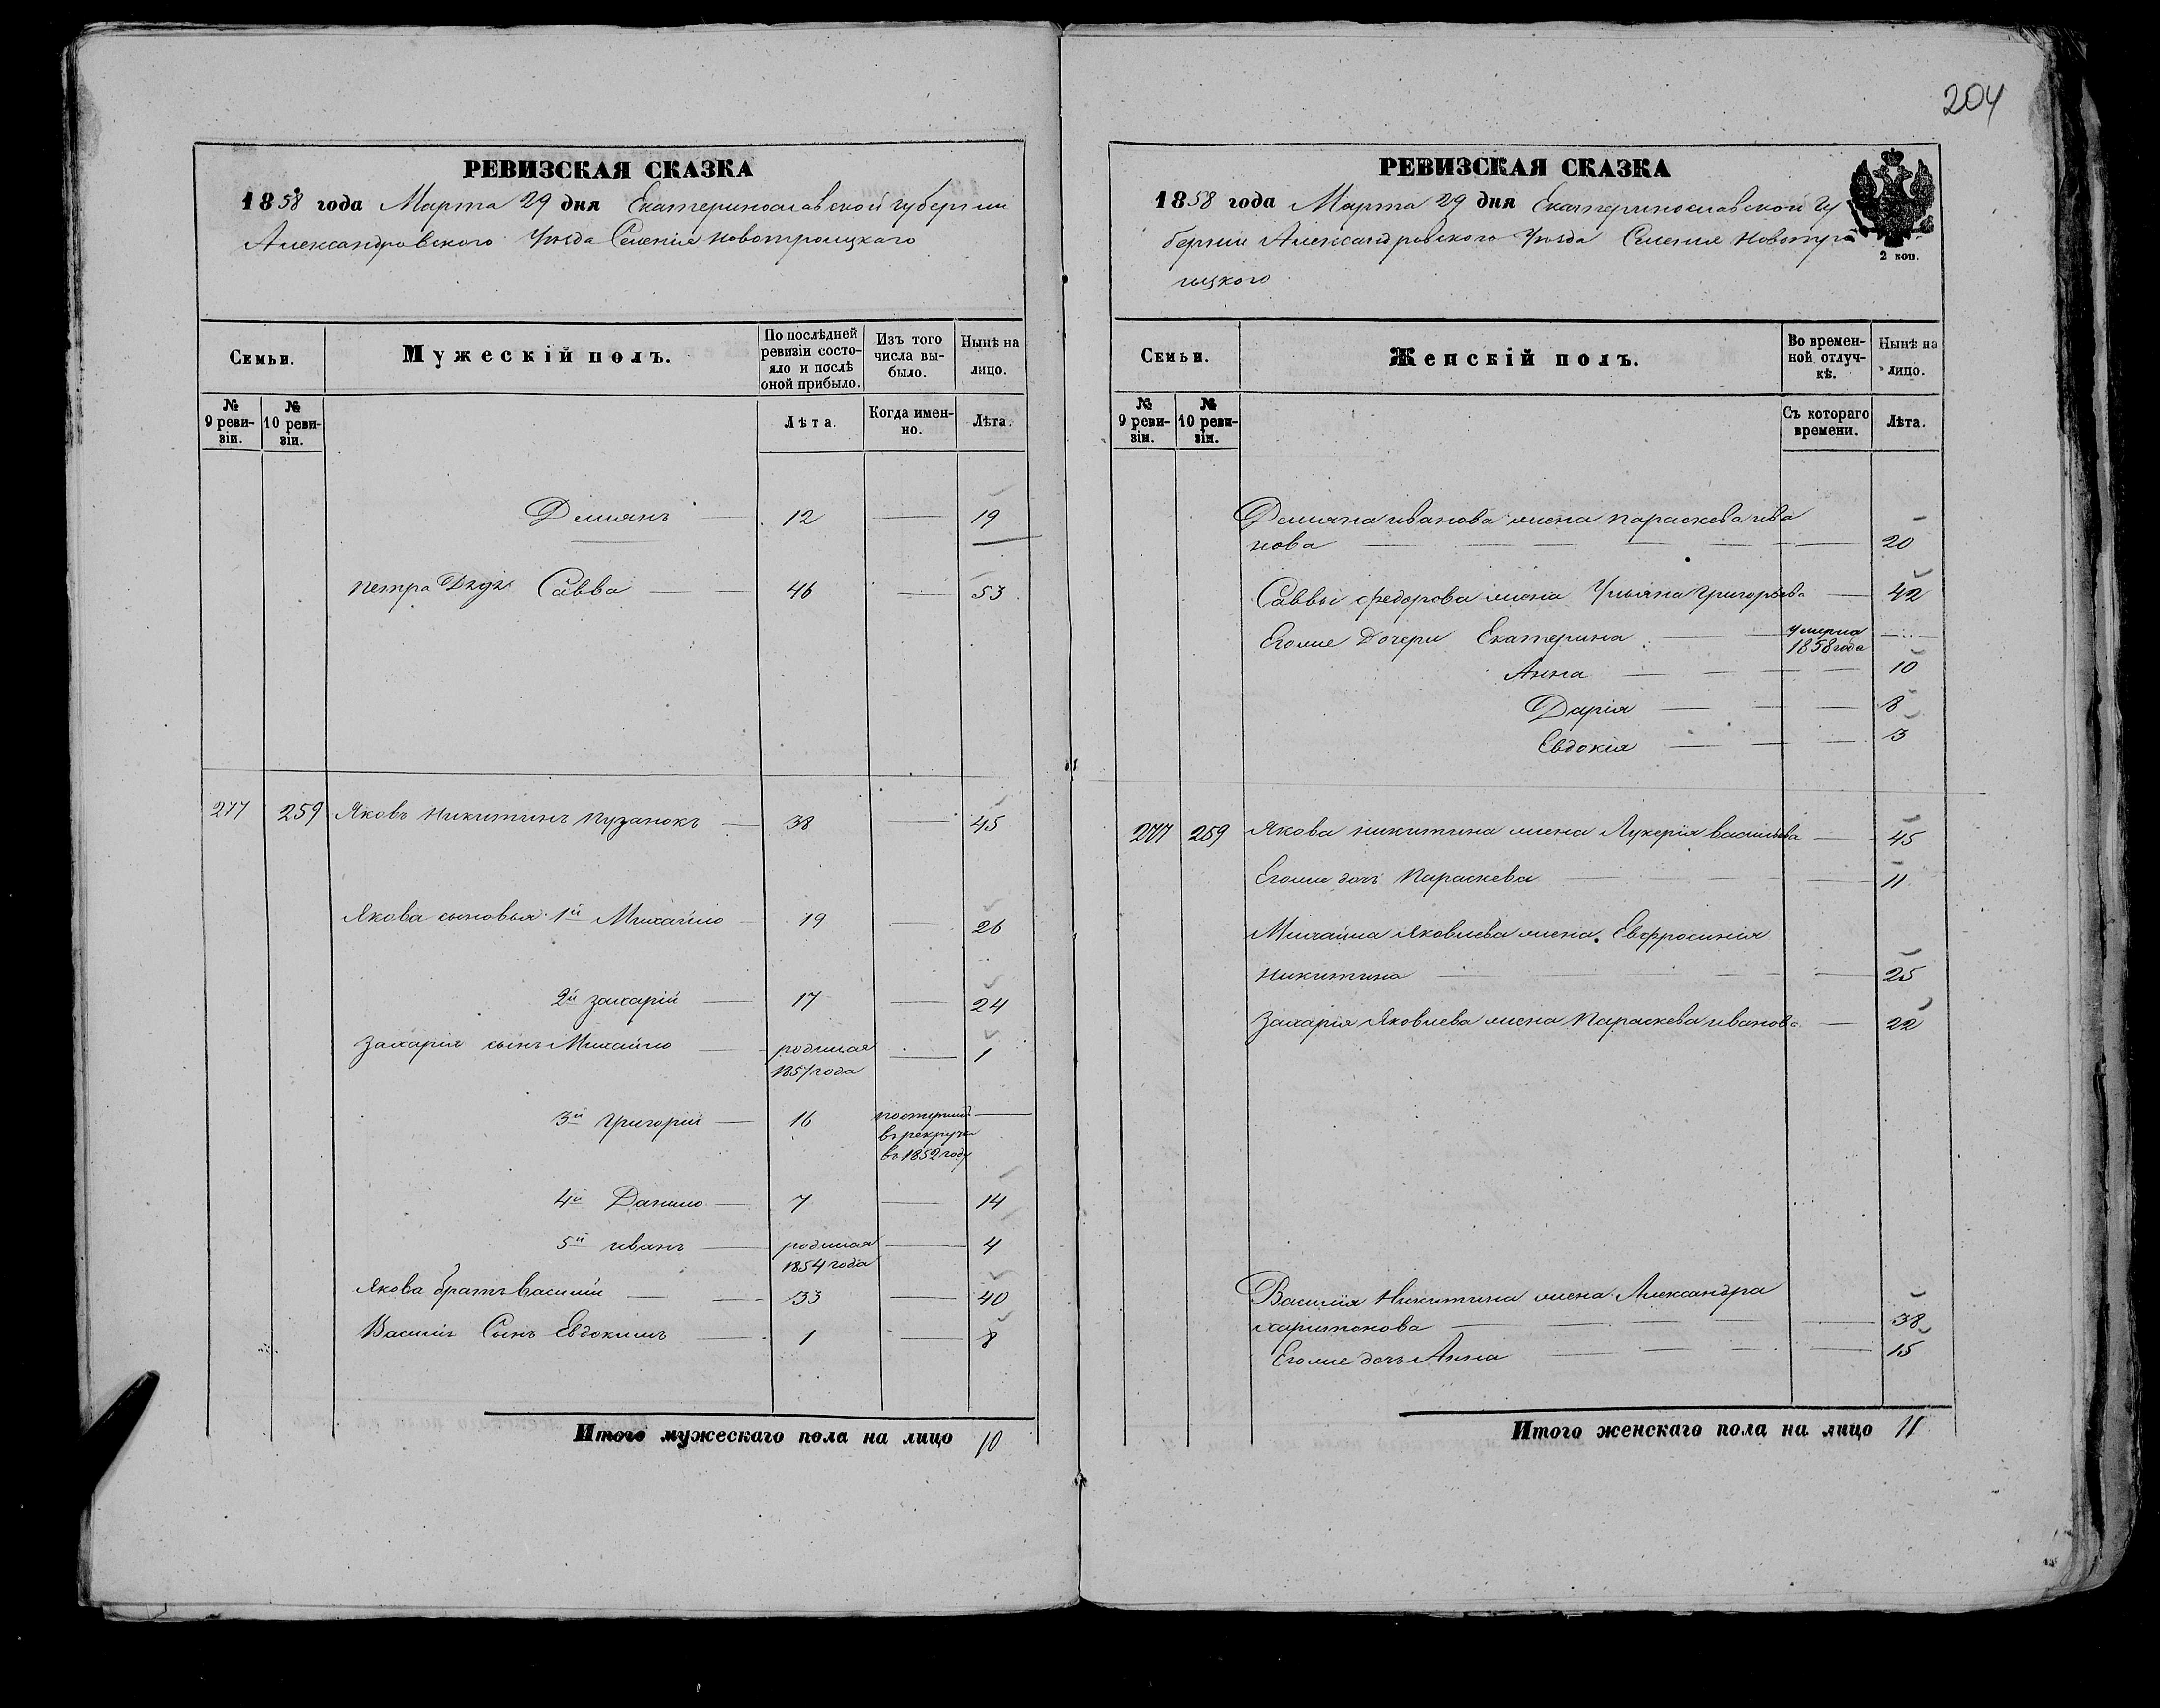 204
РЕВИЗСКАЯ СКАЗКА
1858 года Марта 29 дня Екатеринославской губернии
Александровского Уѣзда Селенія Новотроицкаго
Семьи.
Мужескій полъ.
По послѣдней ревизіи состояло и послѣ оной прибыло.
Изъ того числа выбыло.
Нынѣ на лицо.
№ 9 ревизіи.
№ 10 ревизіи.
Лѣта.
Когда именно.
Лѣта.
Демянъ 12 19
Петра Дядя Савва 46 53
277 259 Яковъ Никитинъ Пузанокъ 38 45
Якова сыновья 1й Михайло 19 26
2й Захарій 17 24
Захарія сынъ Михайло родился 1857 года 1
3й Григорій 16 поступилъ
въ рекруты
въ 1852 году
4й Данило 7 14
5й Иванъ родился 1854 года 4
Якова братъ Василій 33 40
Василія Сынъ Евдокимъ 1 8
Итого мужескаго пола на лицо 10
РЕВИЗСКАЯ СКАЗКА
1858 года Марта 29 дня Екатеринославской Гу
берніи Александровского Уѣзда Селенія Новотро
ицкого
2 коп.
Семьи.
Женскій полъ.
Во временной отлучкѣ.
Нынѣ на лицо.
№ 9 ревизіи.
№ 10 ревизіи.
Съ котораго времени.
Лѣта.
Демяна Иванова жена Параскева Ива
нова 20
Саввы Федорова жена Ульяна Григорьева 42
Егоже Дочери Екатерина умерла 1858 года
Анна 10
Дарія 8
Евдокія 3
277 259 Якова Никитина жена Лукерія Васильева 45
Егоже дочь Параскева 11
Михайла Яковлева жена Евфросинія
Никитина 25
Захарія Яковлева жена Параскева Иванова 22
Василія Никитина жена Александра
Харитонова 38
Егоже дочь Анна 15
Итого женскаго пола на лицо 11